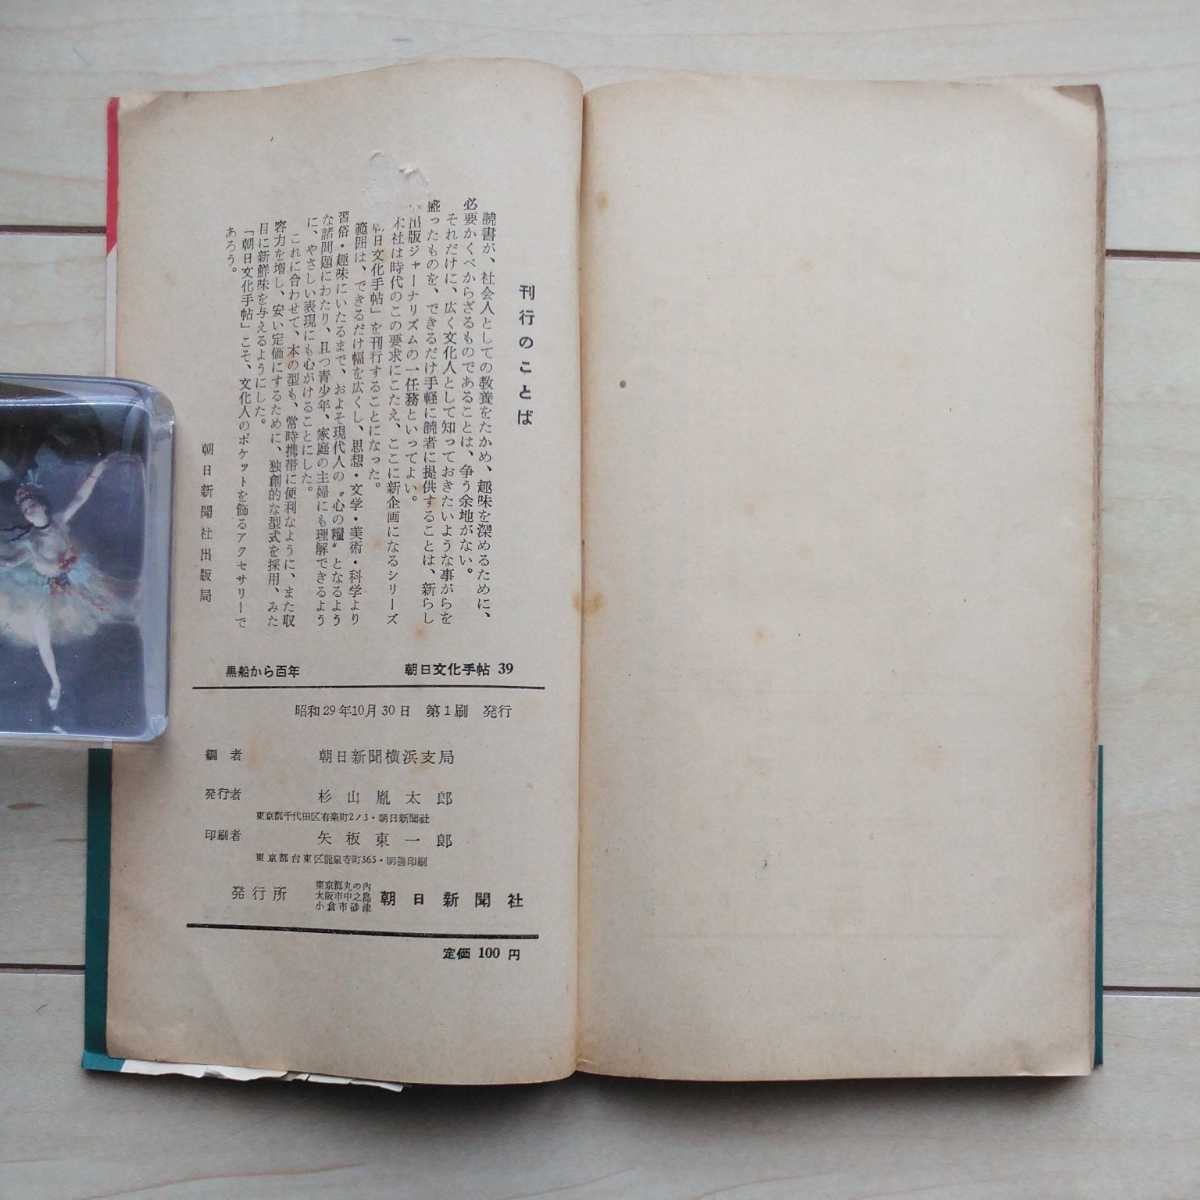 刊行のことば
読書が、社会人としての教養をたかめ、趣味を深めるために、
必要かくべからざるものであることは、争う余地がない。
それだけに、広く文化人として知っておきたいような事がらを
盛ったものを、できるだけ手軽に読者に提供することは、新らし
出版ジャーナリズムの一任務といってよい。
本社は時代のこの要求にこたえ、ここに新企画になるシリーズ
朝日文化手帖」を刊行することになった。
範囲は、できるだけ幅を広くし、思想・文学・美術・科学より
習俗・趣味にいたるまで、およそ現代人の〝心の糧〟となるよう
な諸問題にわたり、且つ青少年、家庭の主婦にも理解できるよう
に、やさしい表現にも心がけることにした。
これに合わせて、本の型も、常時携帯に便利なように、また収
容力を増し、安い定価にするために、独創的な型式を採用、みた
目に新鮮味を与えるようにした。
「朝日文化手帖」こそ、文化人のポケットを飾るアクセサリーで
あろう。
朝日新聞社出版局
黒船から百年 朝日文化手帖 39
昭和29年10月30日 第1刷 発行
編者 朝日新聞横浜支局
発行者 杉山胤太郎
東京都千代田区有楽町2ノ3・朝日新聞社
印刷者 矢板東一郎
東京都台東区龍泉寺町365・明善印刷
発行所 東京都丸の内 大阪市中之島 小倉市砂津 朝日新聞社
定価 100 円